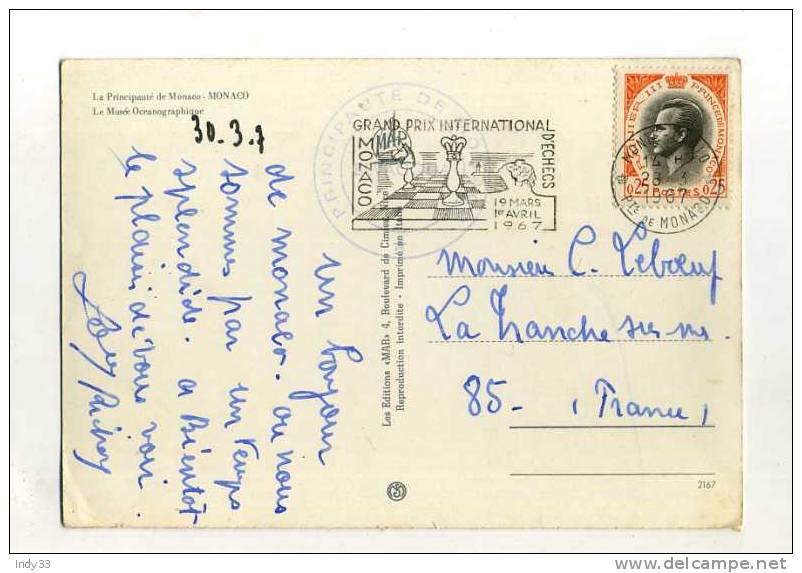 La Principauté de Monaco - MONACO
Le Musée Oceanographique
30.3.7
un bonjour
de monaco. ou nous
sommes par un temps
splendide. a Bientot
le plaisir de vous voir.
Les Editions «MAR» 4, Boulevard de
Reproduction interdite - Imprimé en Italie
PRINCIPAUTÉ DE
GRAND PRIX INTERNATIONAL
D'ECHECS
MONACO
19 MARS
1er AVRIL
1967
RAINIER III PRINCE DE MONACO
0.25 POSTES 0.25
MONACO
1967
PTÉ DE MONACO
Monsieur C. Leboeuf
La Tranche sur mer.
85 - (France)
2167
Indy33
delcampe.net